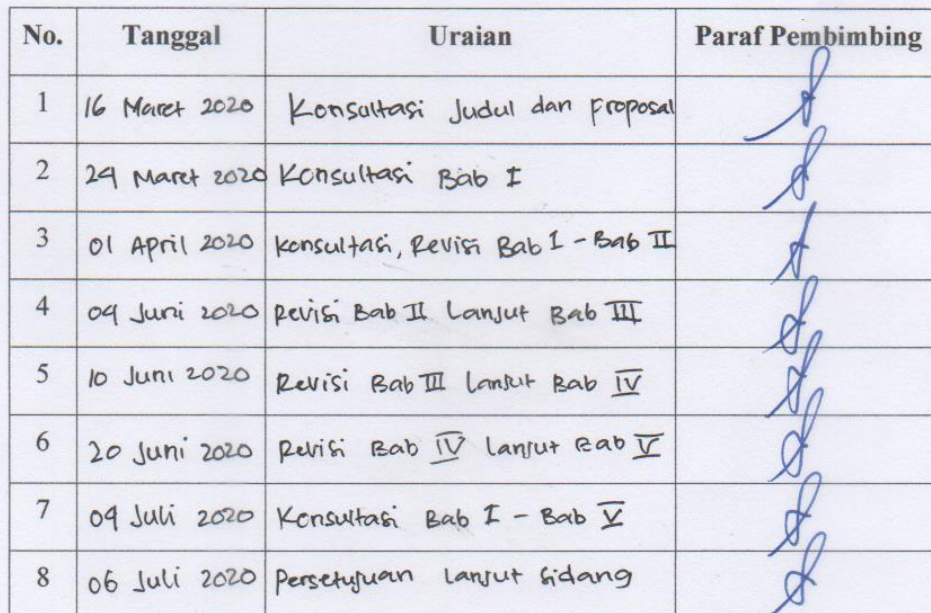 No. Tanggal Uraian Paraf Pembimbing
1 16 Maret 2020 Konsultasi Judul dan Proposal
2 24 Maret 2020 Konsultasi Bab I
3 01 April 2020 Konsultasi, Revisi Bab I - Bab II
4 04 Juni 2020 Revisi Bab II Lanjut Bab III
5 10 Juni 2020 Revisi Bab III Lanjut Bab IV
6 20 Juni 2020 Revisi Bab IV Lanjut Bab V
7 04 Juli 2020 Konsultasi Bab I - Bab V
8 06 Juli 2020 Persetujuan Lanjut Sidang